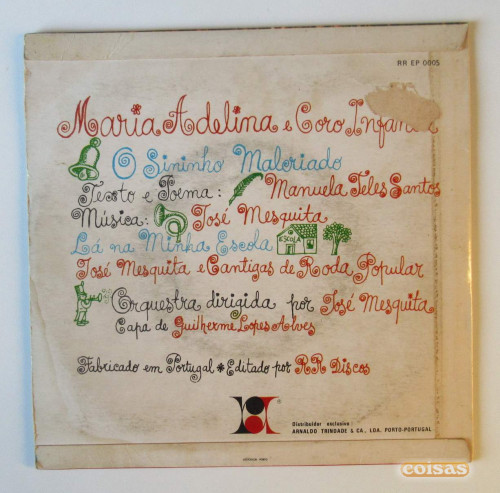 RR EP 0005
Maria Adelina e Coro Infantil
O Sininho Malcriado
Texto e Poema: Manuela Teles Santos
Música: José Mesquita
Lá na Minha Escola
ESCOLA
José Mesquita e Cantigas de Roda Popular
Orquestra dirigida por José Mesquita
Capa de Guilherme Lopes Alves
Fabricado em Portugal • Editado por RR Discos
Distribuidor exclusivo:
ARNALDO TRINDADE & CA., LDA. PORTO-PORTUGAL
coisas